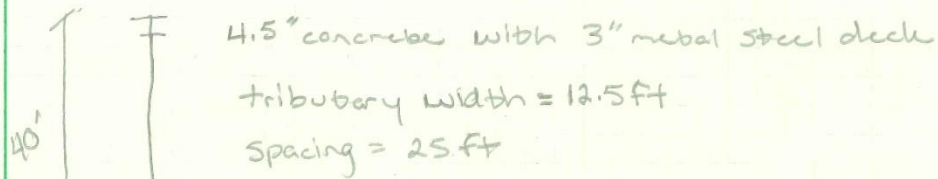 4.5" concrete with 3" metal steel deck
tributary width = 12.5ft
40'
spacing = 25ft